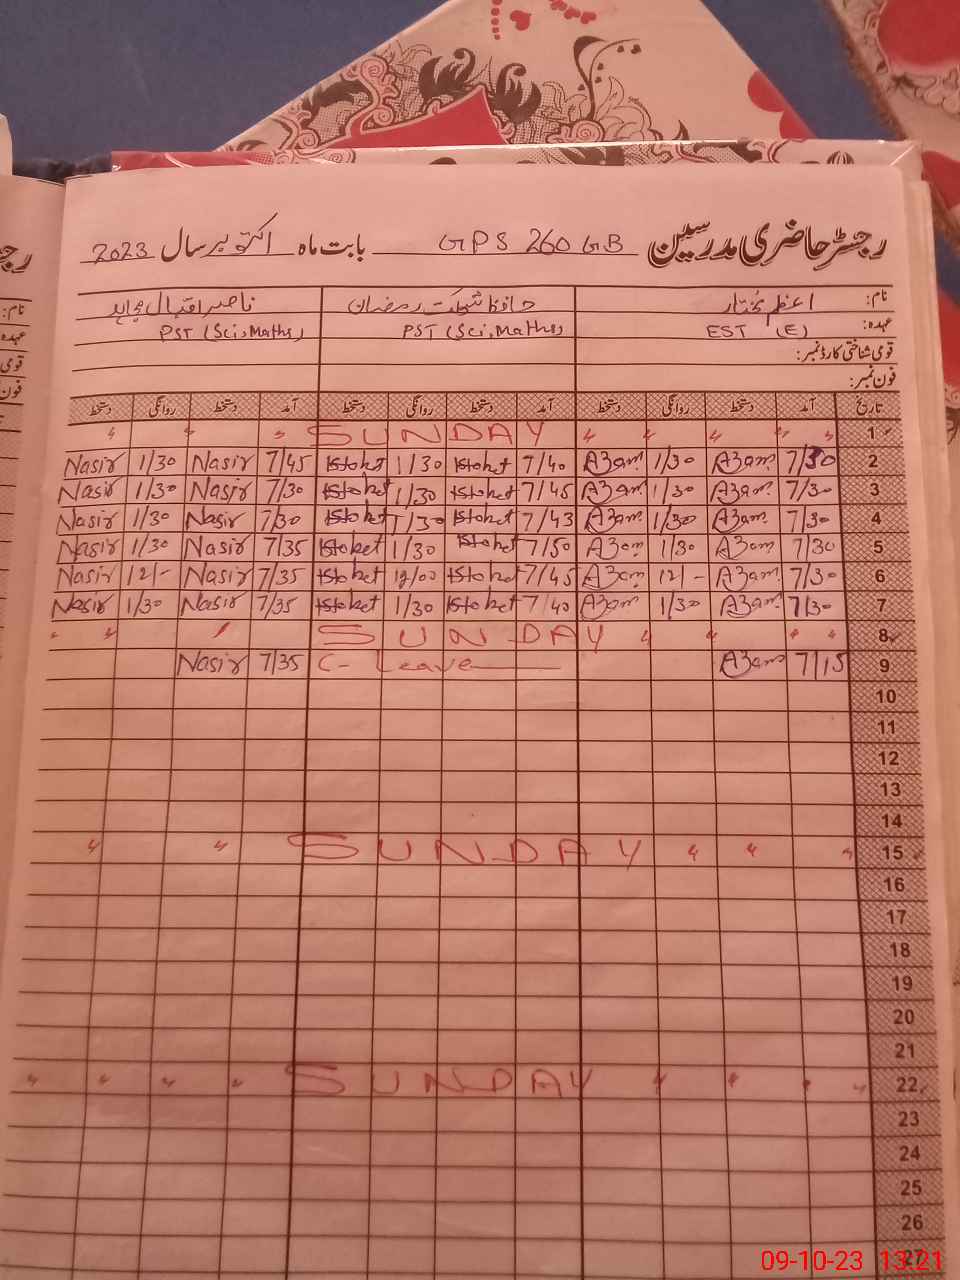 رجسٹر حاضری مدرسین GPS 260 GB بابت ماہ اکتوبر سال 2023
نام: اعظم مختار حافظ شوکت رمضان ناصر اقبال مجاہد
عہدہ: EST (E) PST (Sci, Maths) PST (Sci, Maths)
قومی شناختی کارڈ نمبر:
فون نمبر:
تاریخ آمد دستخط روانگی دستخط آمد دستخط روانگی دستخط آمد دستخط روانگی دستخط
1 " " " " SUNDAY " " "
2 7/30 A3am 1/30 A3am 7/40 1/30 7/45 Nasir 1/30 Nasir
3 7/30 A3am 1/30 A3am 7/45 1/30 7/30 Nasir 1/30 Nasir
4 7/30 A3am 1/30 A3am 7/43 1/30 7/30 Nasir 1/30 Nasir
5 7/30 A3am 1/30 A3am 7/50 1/30 7/35 Nasir 1/30 Nasir
6 7/30 A3am 12/- A3am 7/45 12/00 7/35 Nasir 12/- Nasir
7 7/30 A3am 1/30 A3am 7/40 1/30 7/35 Nasir 1/30 Nasir
8 " " " " SUNDAY " "
9 7/15 A3am C- Leave 7/35 Nasir
10
11
12
13
14
15 " " " SUNDAY " "
16
17
18
19
20
21
22 " " " " SUNDAY " " " "
23
24
25
26
27
09-10-23 13:21